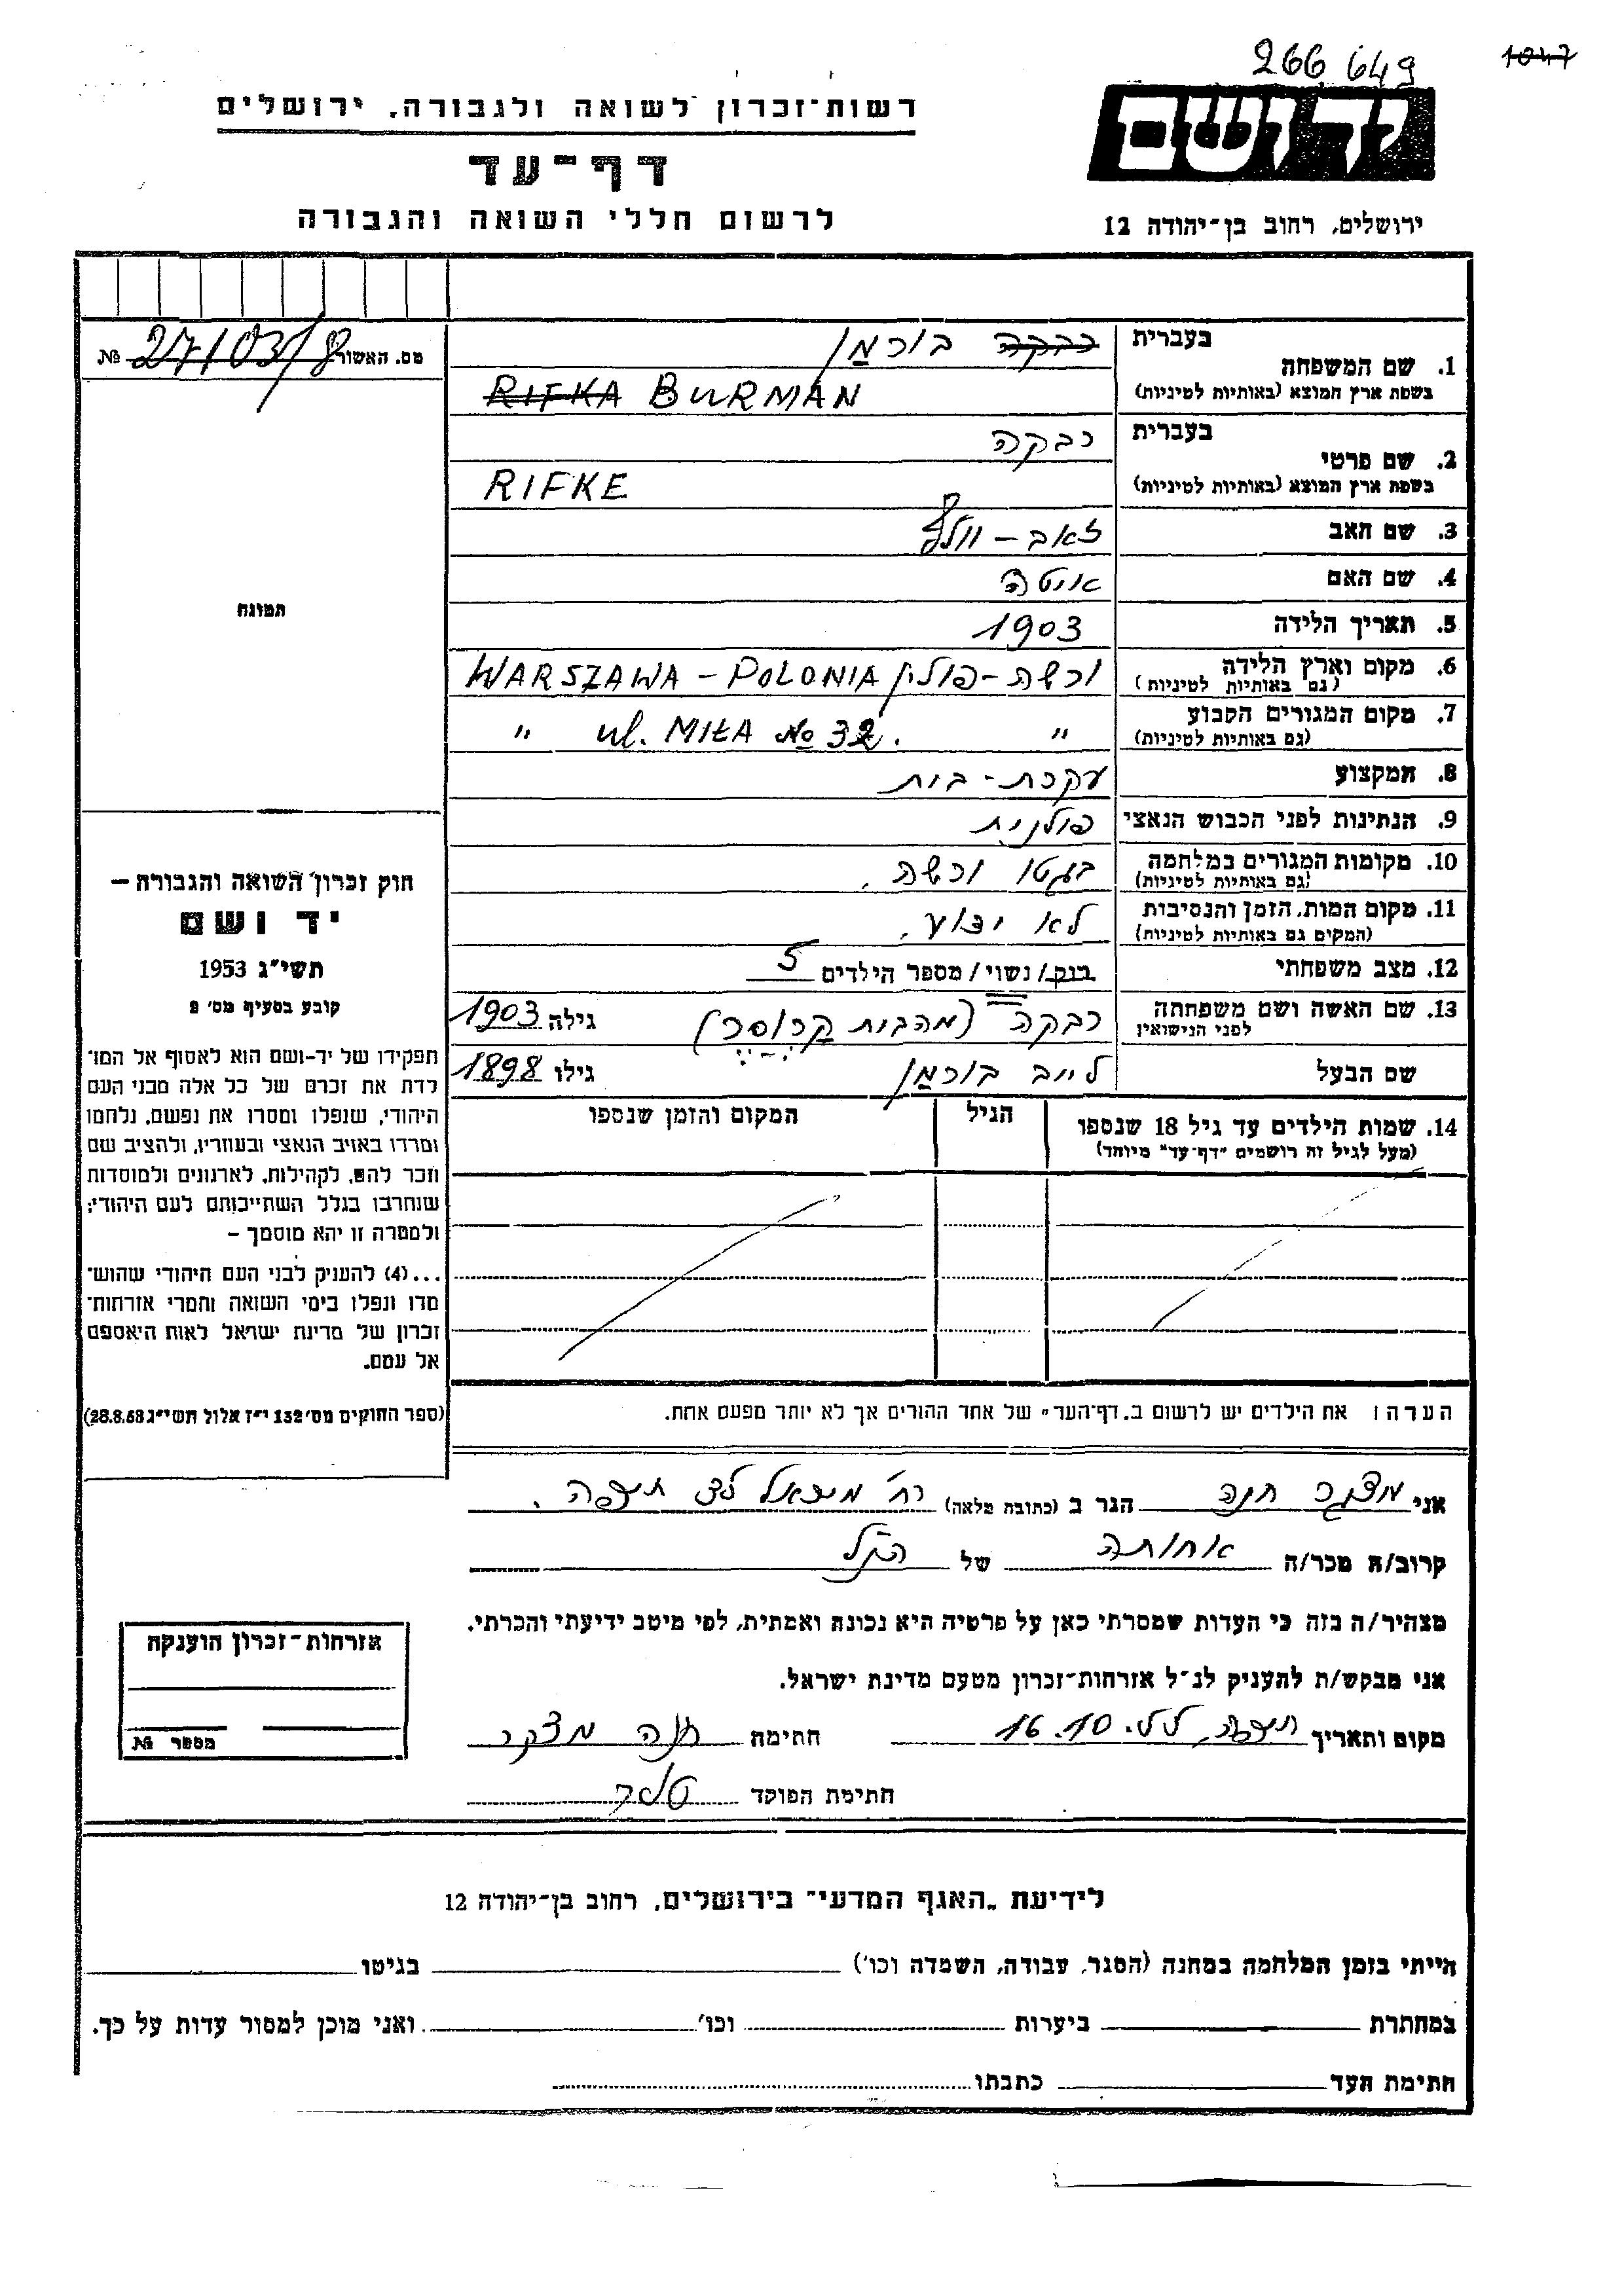 266 649
1047
רשות-זכרון לשואה ולגבורה, ירושלים
יד ושם
דף-עד
לרשום חללי השואה והגבורה
ירושלים, רחוב בן-יהודה 12
מס. האשור 27103/8 №
1. שם המשפחה
בעברית
רבקה בורמן
בשפת ארץ המוצא (באותיות לטיניות)
RIFKA BURMAN
2. שם פרטי
בעברית
רבקה
בשפת ארץ המוצא (באותיות לטיניות)
RIFKE
3. שם האב זאב - וולף
4. שם האם איטה
5. תאריך הלידה 1903
6. מקום וארץ הלידה (גם באותיות לטיניות) ורשה - פולין WARSZAWA - POLONIA
7. מקום המגורים הקבוע (גם באותיות לטיניות) " ul. MIŁA № 32. "
8. המקצוע עקרת - בית
9. הנתינות לפני הכבוש הנאצי פולנית
10. מקומות המגורים במלחמה (גם באותיות לטיניות) בגטו ורשה.
11. מקום המות, הזמן והנסיבות (המקום גם באותיות לטיניות) לא ידוע.
12. מצב משפחתי רווק/נשוי/מספר הילדים 5
13. שם האשה ושם משפחתה לפני הנישואין רבקה (מהבית) גילה 1903
שם הבעל לייב בורמן גילו 1898
14. שמות הילדים עד גיל 18 שנספו (מעל לגיל זה רושמים "דף-עד" מיוחד)
הגיל
המקום והזמן שנספו
הערה: את הילדים יש לרשום ב"דף-העד" של אחד ההורים אך לא יותר מפעם אחת.
תמונה
חוק זכרון השואה והגבורה –
יד ושם
תשי"ג 1953
קובע בסעיף מס' 2
תפקידו של יד-ושם הוא לאסוף אל המו-
לדת את זכרם של כל אלה מבני העם
היהודי, שנפלו ומסרו את נפשם, נלחמו
ומרדו באויב הנאצי ובעוזריו, ולהציב שם
וזכר להם, לקהילות, לארגונים ולמוסדות
שנחרבו בגלל השתייכותם לעם היהודי;
ולמטרה זו יהא מוסמך –
...(4) להעניק לבני העם היהודי שהוש-
מדו ונפלו בימי השואה והמרי אזרחות-
זכרון של מדינת ישראל לאות היאספם
אל עמם.
(ספר החוקים מס' 132 י"ז אלול תשי"ג 28.8.53)
אני מצגר חנה הגר ב (כתובת מלאה) רח' מיכאל חיפה.
קרוב/ה מכר/ה אחותה של הנ"ל
מצהיר/ה בזה כי העדות שמסרתי כאן על פרטיה היא נכונה ואמתית, לפי מיטב ידיעתי והכרתי.
אני מבקש/ת להעניק לנ"ל אזרחות-זכרון מטעם מדינת ישראל.
מקום ותאריך חיפה, 16.10. חתימה חנה מצגר
חתימת הפוקד
אזרחות-זכרון הוענקה
מספר №
לידיעת "האגף המדעי" בירושלים, רחוב בן-יהודה 12
הייתי בזמן המלחמה במחנה (הסגר, עבודה, השמדה וכו') בגיטו
במחתרת ביערות וכו' ואני מוכן למסור עדות על כך.
חתימת העד כתבתו